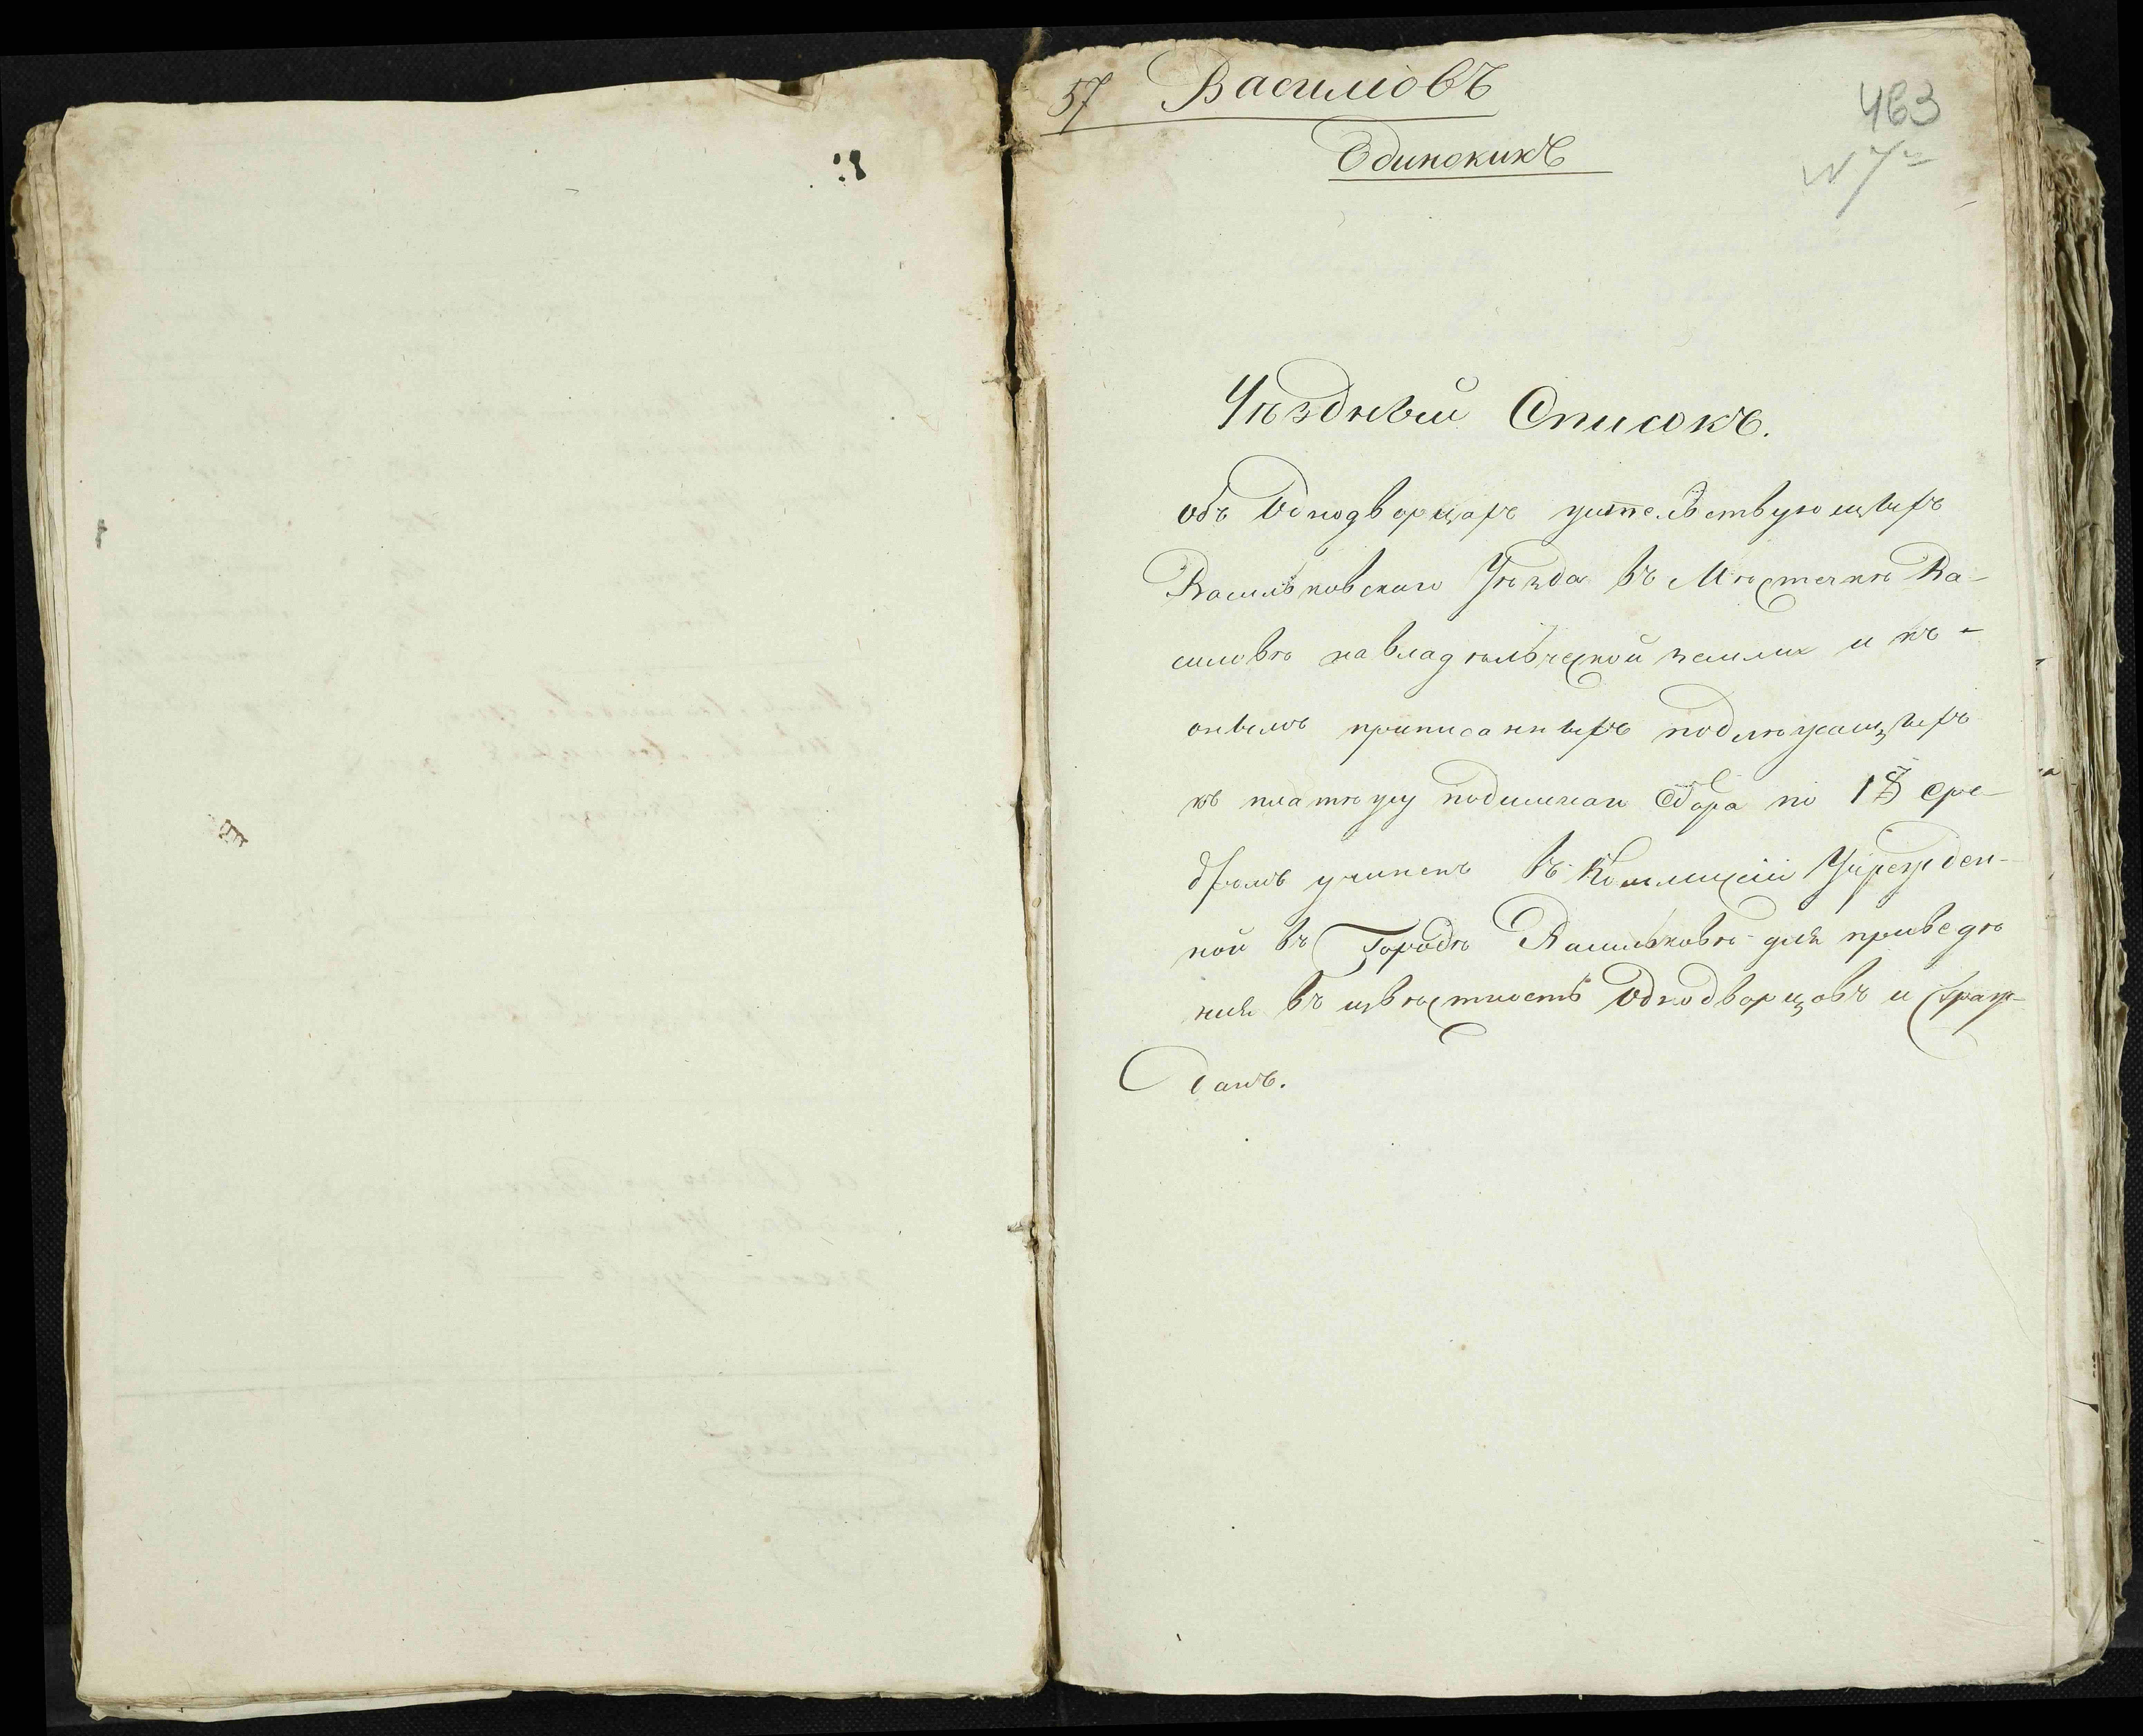 57 Василiовъ
463
Одинокихъ
N 7
Уѣздный Списокъ.
Объ Однодворцахъ жительствующихъ
Васильковскаго Уѣзда въ Мѣстечкѣ Ва-
силовѣ на владѣльческой землѣ и къ
онымъ приписанныхъ подлежащихъ
къ платежу подымнаго Сбора по сере-
бромъ учиненъ въ Коммисіи Учрежден-
ной въ Городѣ Васильковѣ для приведѣ
нія въ извѣстность Однодворцовъ и Граж-
данъ.